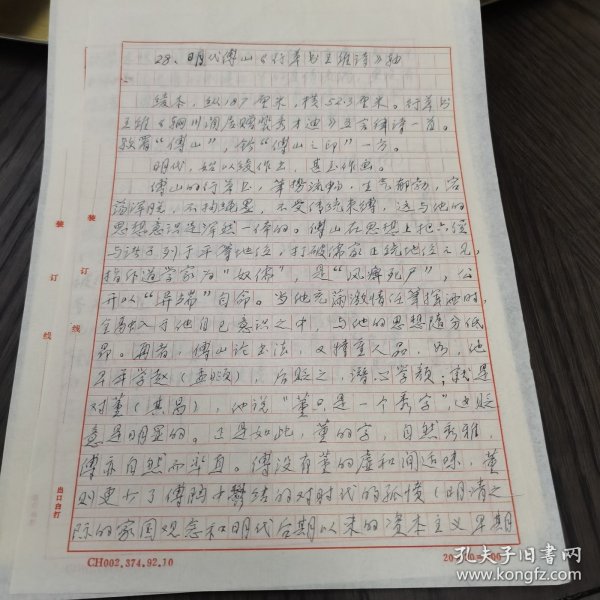 28、明代傅山《行草书王维诗》轴
绫本，纵187厘米，横52.3厘米。行草书
王维《辋川闲居赠裴秀才迪》五言律诗一首。
款署“傅山”，钤“傅山之印”一方。
明代，始以绫作书，甚至作画。
傅山的行草书，笔势流畅，生气郁勃，宕
荡浑脱，不拘绳墨，不受传统束缚，这与他的
思想意识是浑然一体的。傅山在思想上把六经
与诸子列于平等地位，打破儒家正统地位之见，
指斥道学家为“奴儒”，是“风痹死尸”，公
开以“异端”自命。当他充满激情任笔挥洒时，
全都融入于他自己意识之中，与他的思想随分低
昂。再者，傅山论书法，又特重人品，如，他
早年学赵（孟頫），后贬之，潜心学颜；就是
对董（其昌），他说“董只是一个秀字”，这贬
意是明显的。正是如此，董的字，自然秀雅，
傅亦自然而率真。傅没有董的虚和闲适味，董
则更少了傅胸中郁结的对时代的孤愤（明清之
际的家国观念和明代后期以来的资本主义早期
装 订 线
装 订 线
出口自打
CH002.374.92.10
孔夫子旧书网
www.kongfz.com